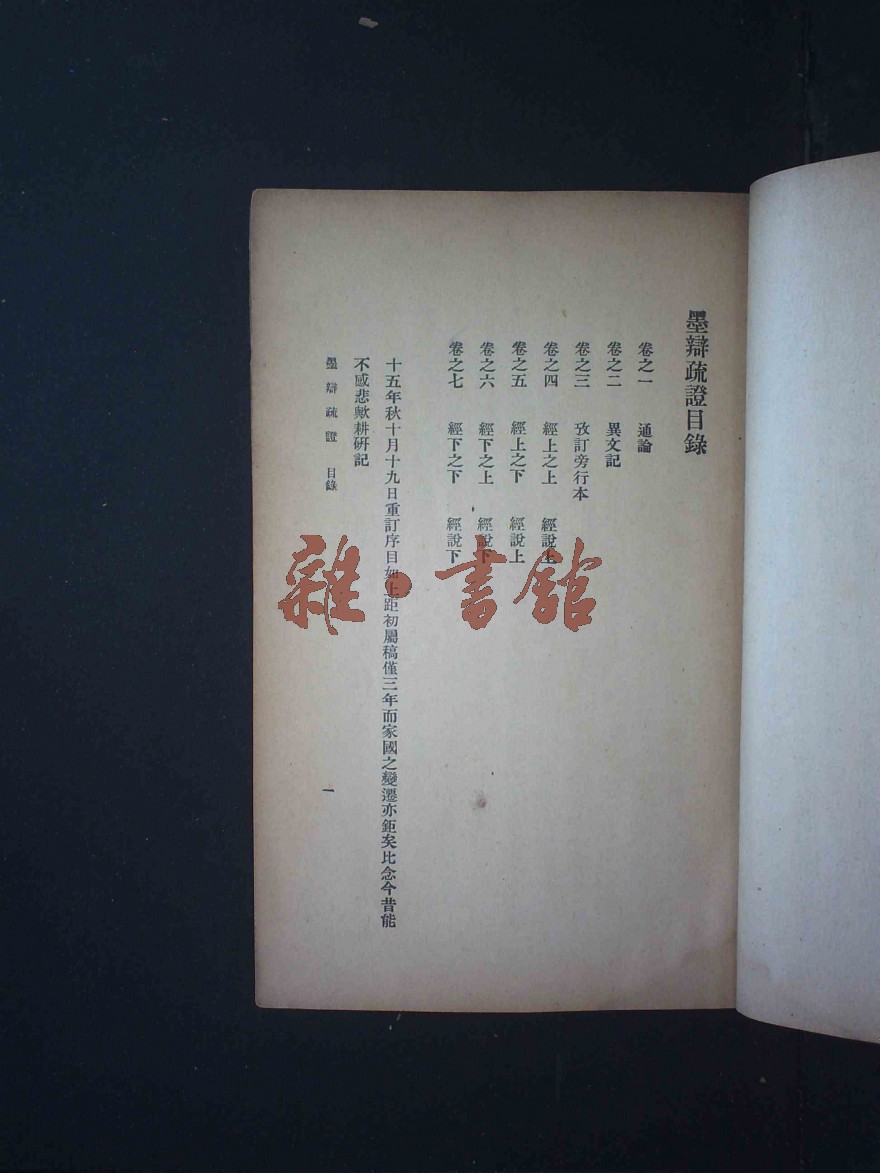 墨辯疏證目錄
卷之一　通論
卷之二　異文記
卷之三　攷訂旁行本
卷之四　經上之上　經說上
卷之五　經上之下　經說上
卷之六　經下之上　經說下
卷之七　經下之下　經說下
十五年秋十月十九日重訂序目如上距初屬稿僅三年而家國之變遷亦鉅矣比念今昔能
不感悲歟耕研記
墨辯疏證　目錄　一
雜·書館